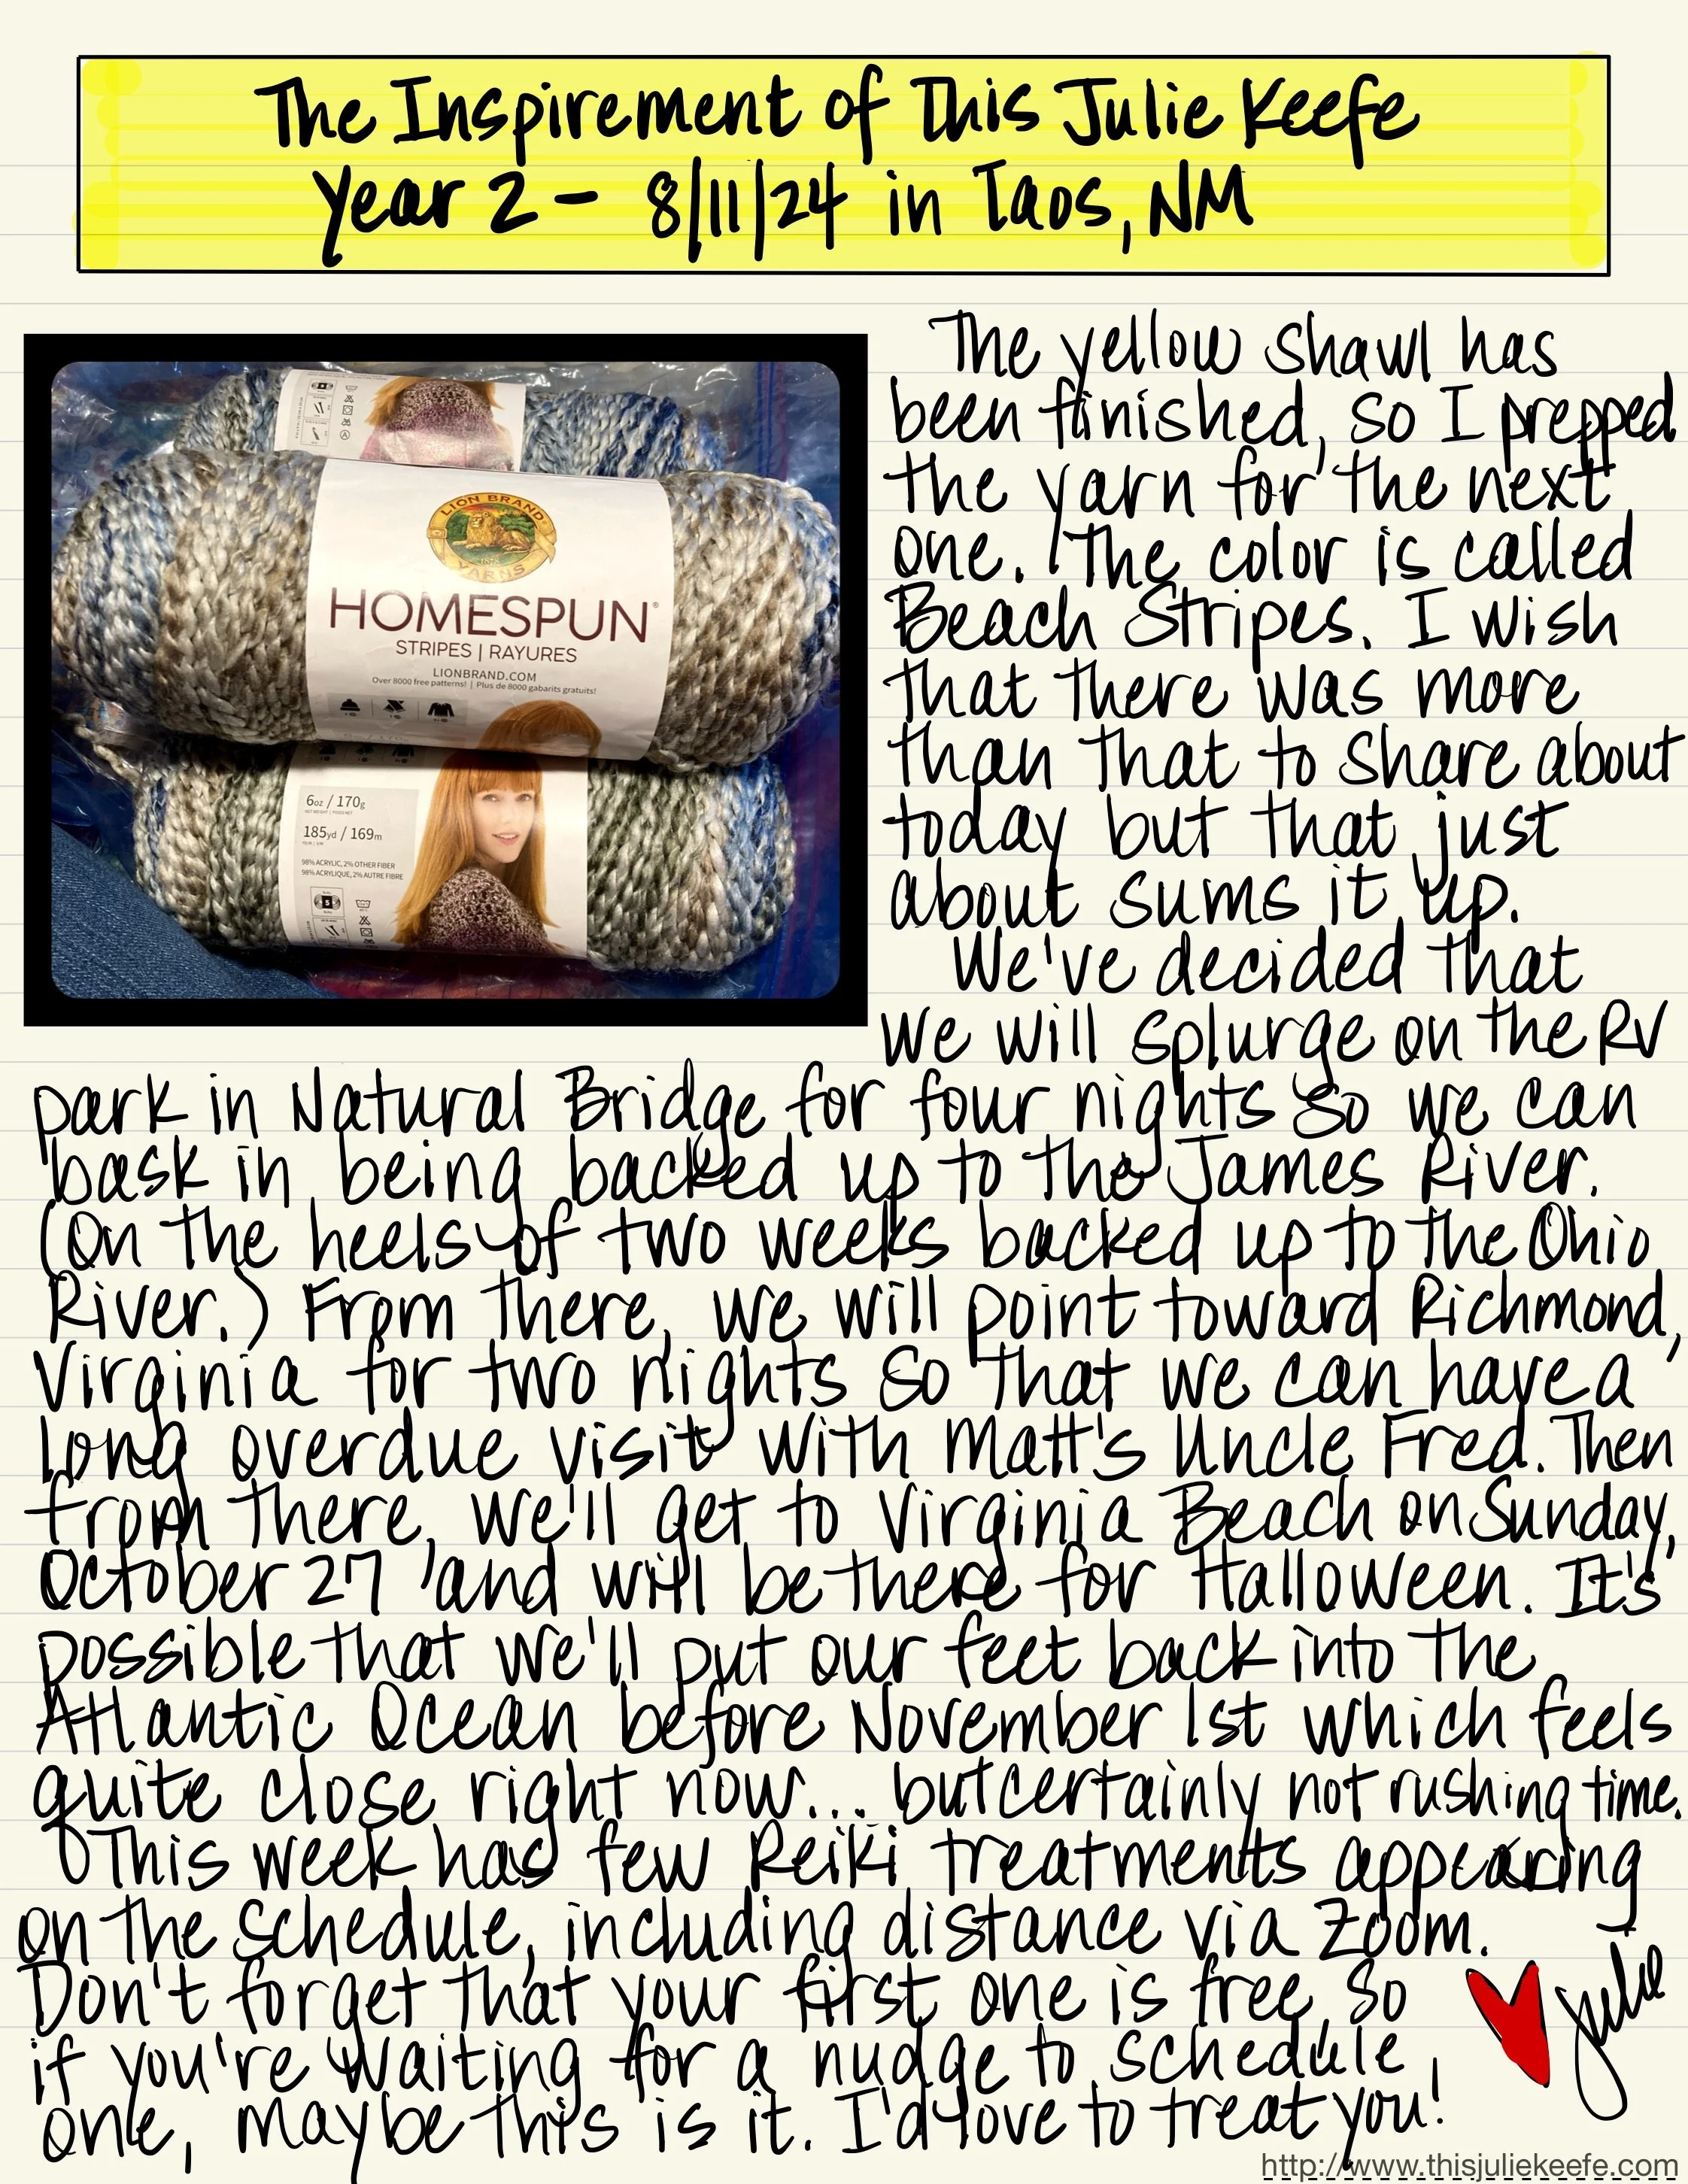 The Inspirement of This Julie Keefe
Year 2 - 8/11/24 in Taos, NM
LION BRAND
YARNS
HOMESPUN®
STRIPES | RAYURES
LIONBRAND.COM
Over 8000 free patterns! | Plus de 8000 gabarits gratuits!
6oz / 170g
185yd / 169m
98% ACRYLIC, 2% OTHER FIBER
98% ACRYLIQUE, 2% AUTRE FIBRE
5
The yellow shawl has
been finished, so I prepped
the yarn for the next
one. The color is called
Beach Stripes. I wish
that there was more
than that to share about
today but that just
about sums it up.
We've decided that
we will splurge on the RV
park in Natural Bridge for four nights so we can
bask in being backed up to the James River.
(On the heels of two weeks backed up to the Ohio
River.) From there, we will point toward Richmond,
Virginia for two nights so that we can have a
long overdue visit with Matt's Uncle Fred. Then
from there, we'll get to Virginia Beach on Sunday,
October 27 and will be there for Halloween. It's
possible that we'll put our feet back into the
Atlantic Ocean before November 1st which feels
quite close right now... but certainly not rushing time.
This week has few Reiki treatments appearing
on the schedule, including distance via Zoom.
Don't forget that your first one is free, so
if you're waiting for a nudge to schedule
one, maybe this is it. I'd love to treat you!
Julie
http://www.thisjuliekeefe.com